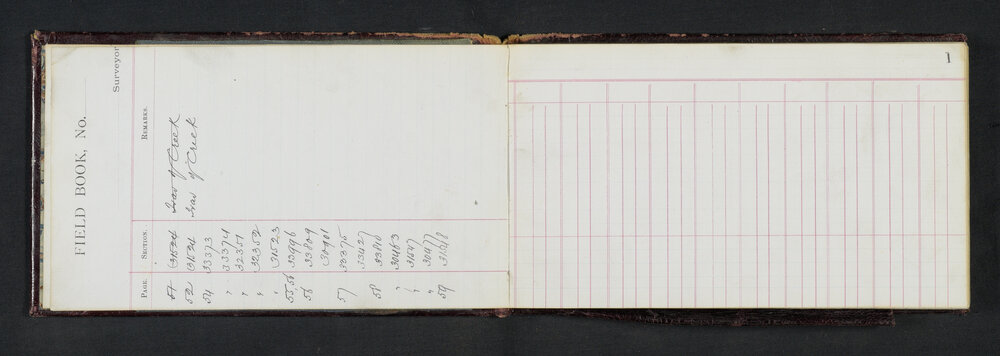 FIELD BOOK, No.
Surveyor
PAGE. SECTION. REMARKS.
51 (31524 Trav of Creek
52 31524 Trav of Creek
54 33373
" 33374
" 32351
" 32352
" (31523
55,56 33996
56 33809
(30901
57 30375
33427
58 33810
" 30463
" 31547
" 30477
59 31418
1